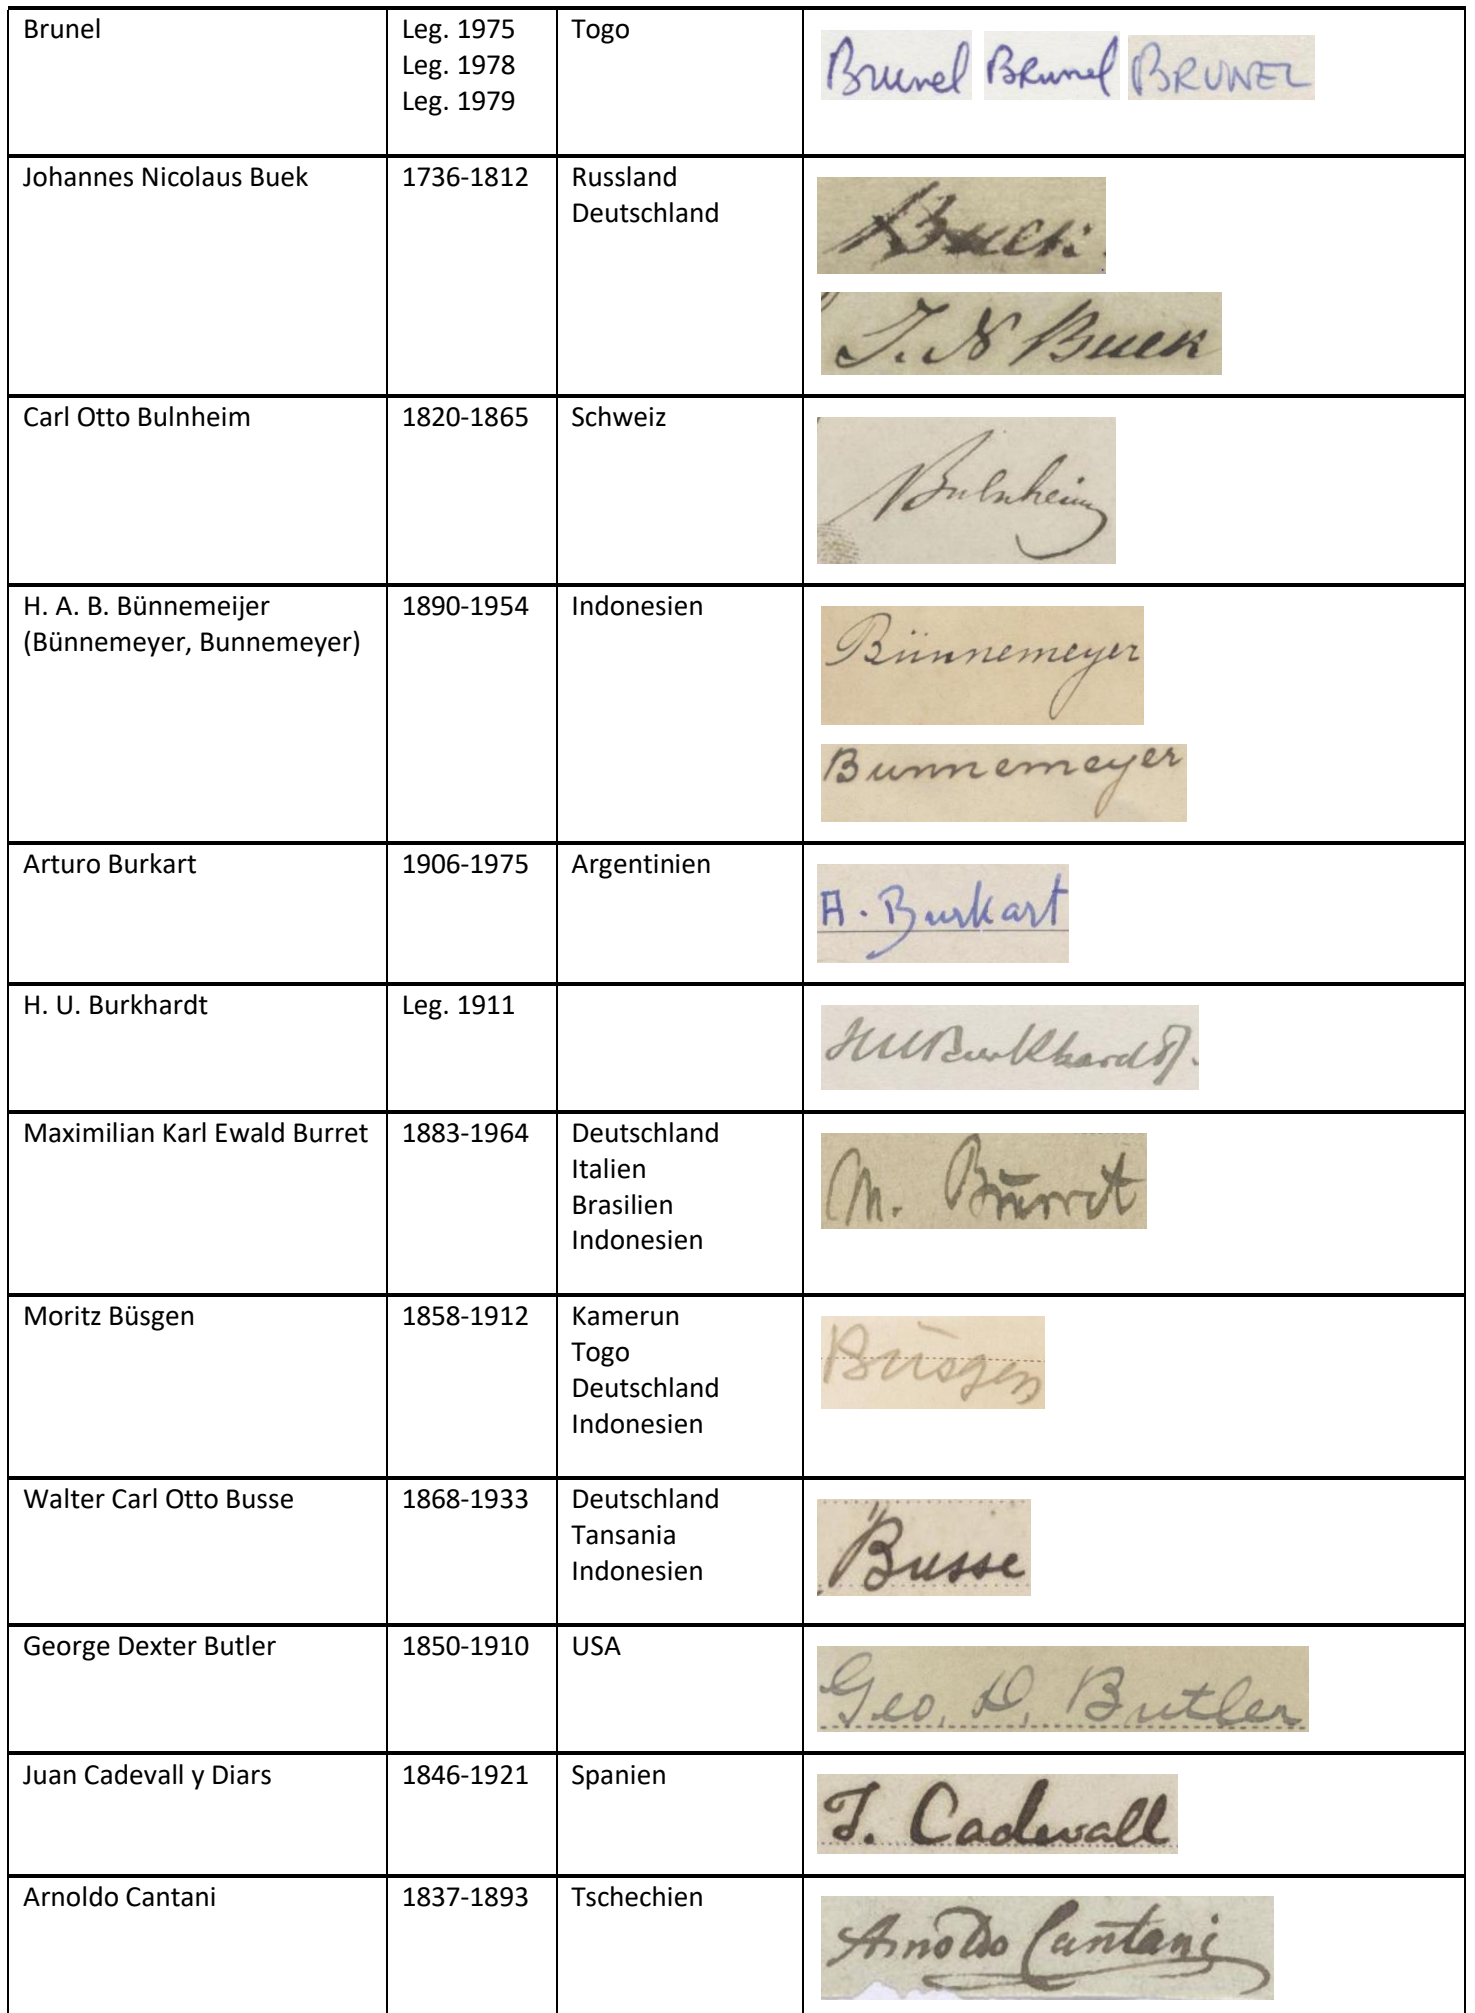 Brunel Leg. 1975 Togo Brunel Brunel BRUNEL
Leg. 1978
Leg. 1979
Johannes Nicolaus Buek 1736-1812 Russland Buek.
Deutschland
J. N Buek
Carl Otto Bulnheim 1820-1865 Schweiz Bulnheim
H. A. B. Bünnemeijer 1890-1954 Indonesien Bünnemeyer
(Bünnemeyer, Bunnemeyer)
Bunnemeyer
Arturo Burkart 1906-1975 Argentinien A. Burkart
H. U. Burkhardt Leg. 1911 HUBurkhardt.
Maximilian Karl Ewald Burret 1883-1964 Deutschland M. Burret
Italien
Brasilien
Indonesien
Moritz Büsgen 1858-1912 Kamerun Büsgen
Togo
Deutschland
Indonesien
Walter Carl Otto Busse 1868-1933 Deutschland Busse
Tansania
Indonesien
George Dexter Butler 1850-1910 USA Geo. D. Butler
Juan Cadevall y Diars 1846-1921 Spanien J. Cadevall
Arnoldo Cantani 1837-1893 Tschechien Arnoldo Cantani